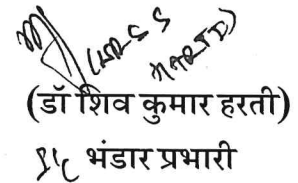 (डॉ शिव कुमार हरती)
I/C भंडार प्रभारी